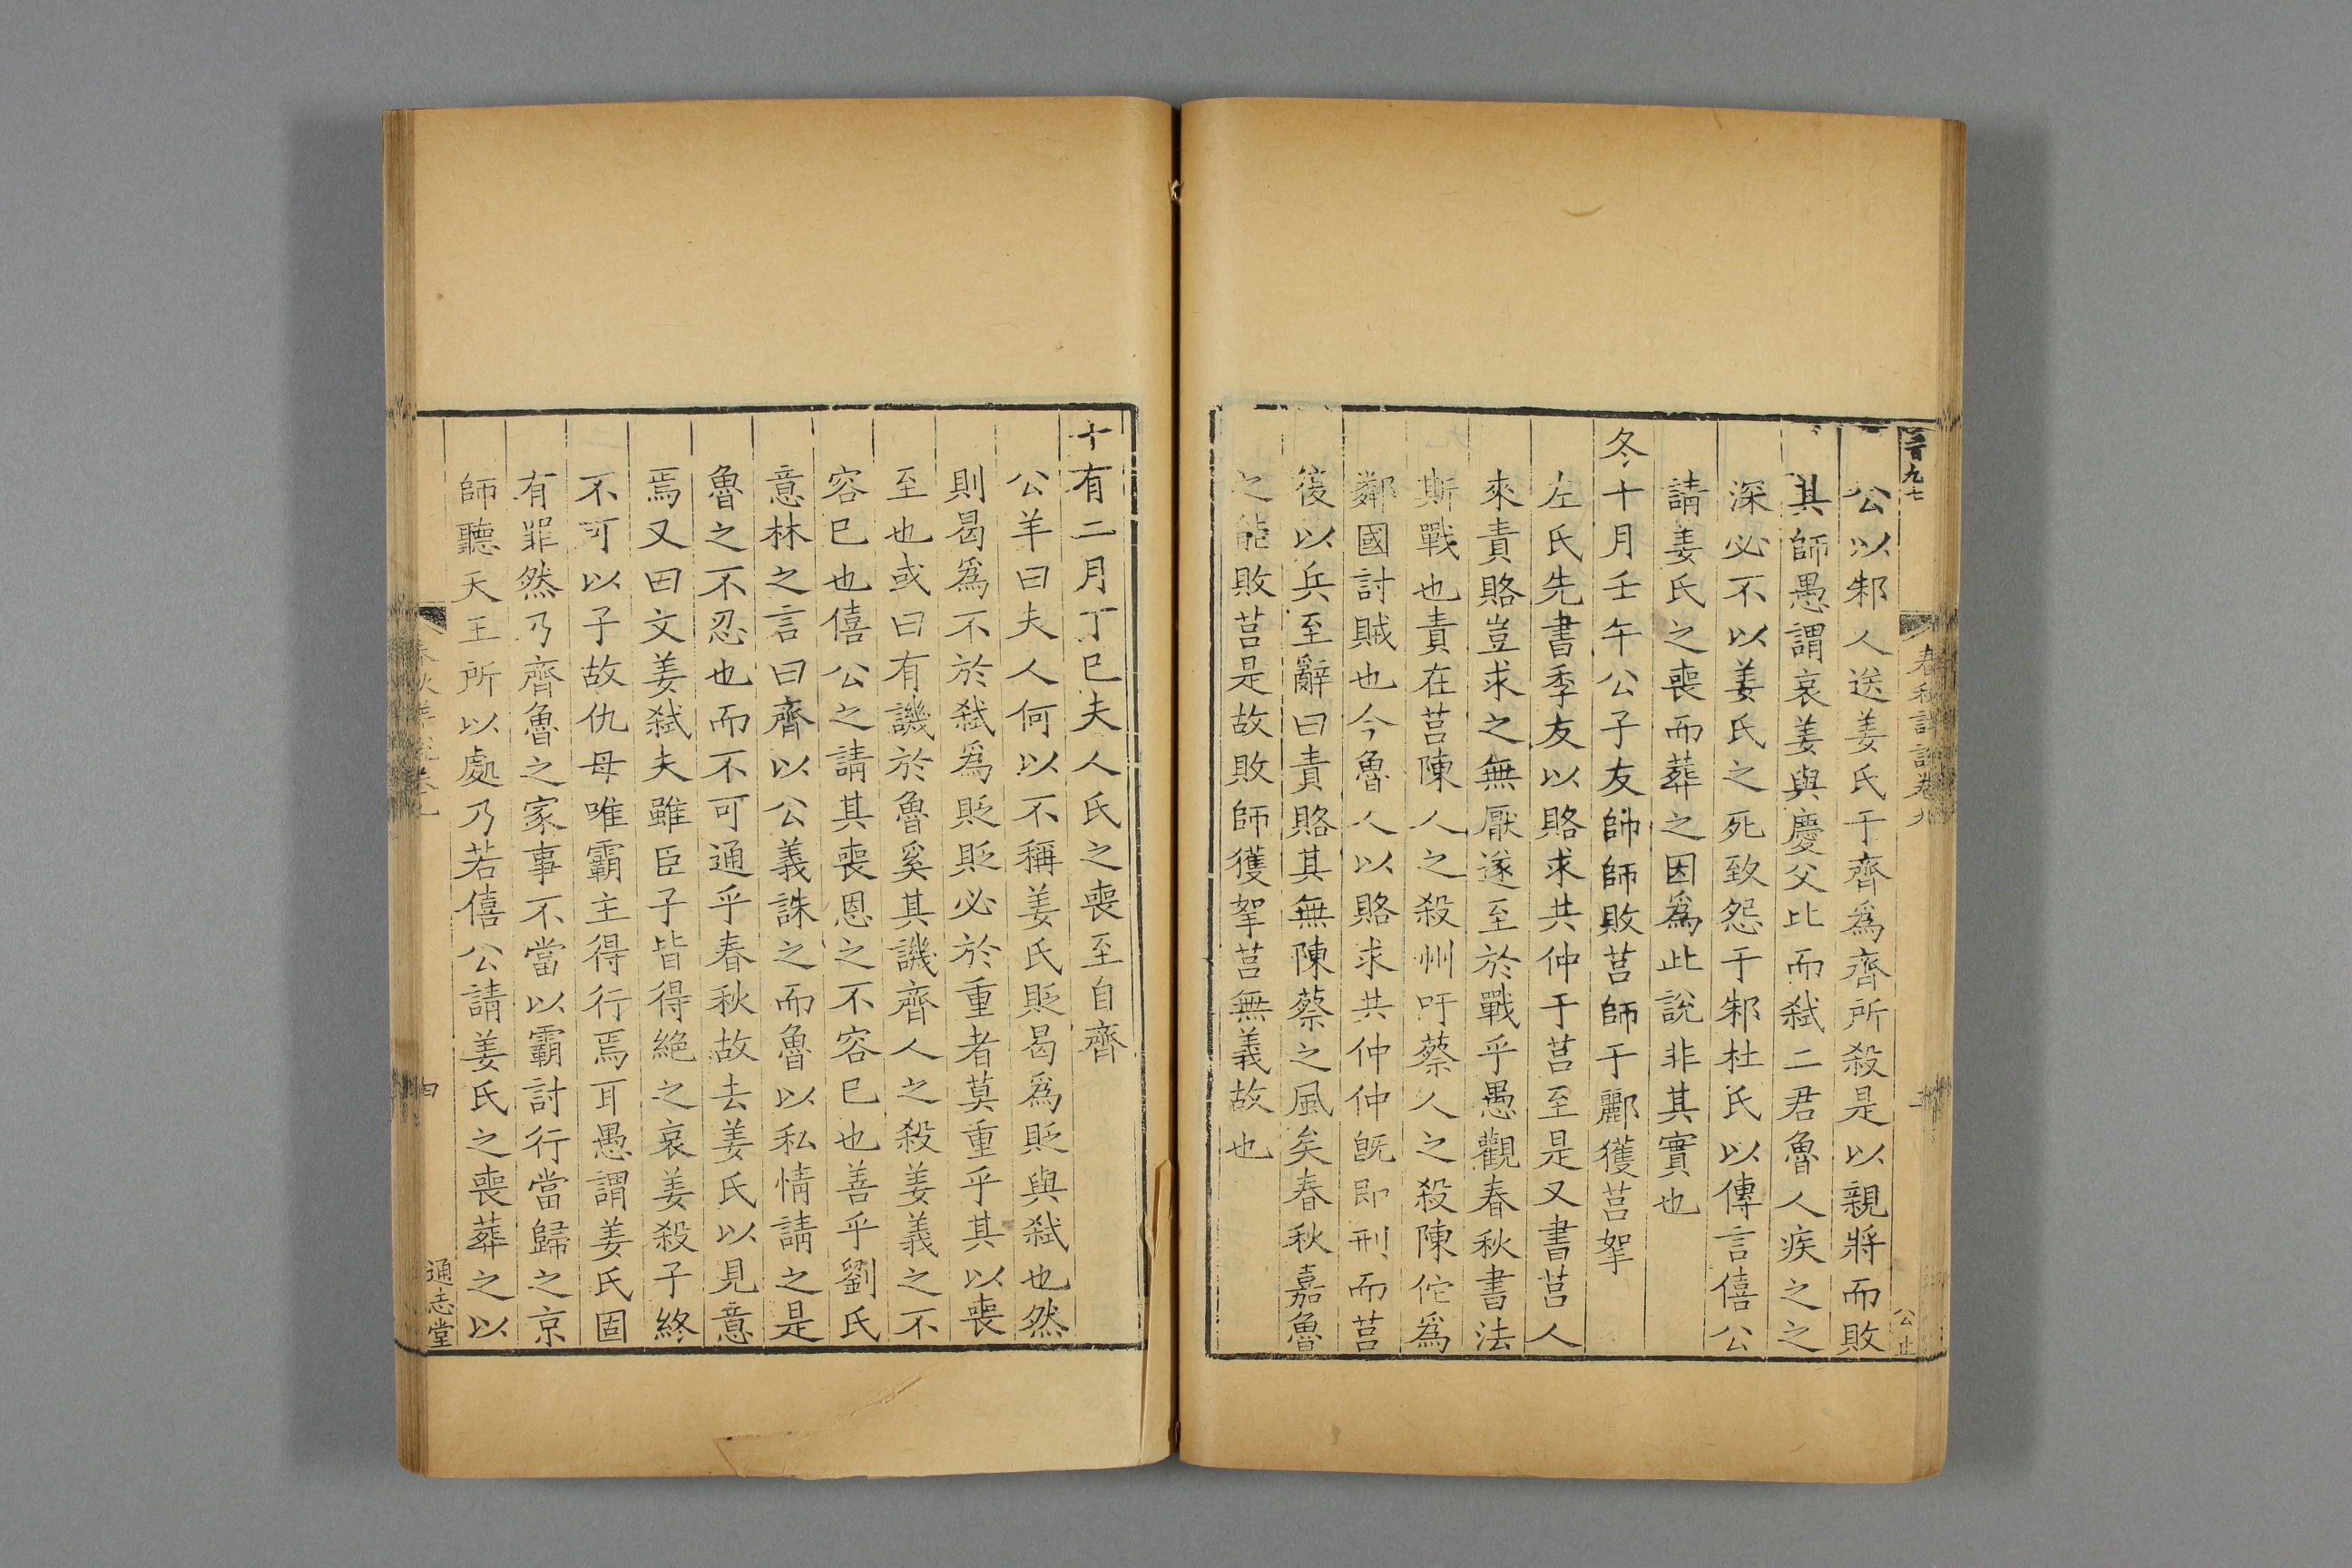 公以邾人送姜氏于齊爲齊所殺是以親將而敗
其師愚謂哀姜與慶父比而弑二君魯人疾之之
深必不以姜氏之死致怨于邾杜氏以傳言僖公
請姜氏之喪而葬之因爲此說非其實也
冬十月壬午公子友帥師敗莒師于酈獲莒挐
左氏先書季友以賂求共仲于莒至是又書莒人
來責賂豈求之無厭遂至於戰乎愚觀春秋書法
斯戰也責在莒陳人之殺州吁蔡人之殺陳佗爲
鄰國討賊也今魯人以賂求共仲仲旣即刑而莒
復以兵至辭曰責賂其無陳蔡之風矣春秋嘉魯
之能敗莒是故敗師獲挐莒無義故也
十有二月丁巳夫人氏之喪至自齊
公羊曰夫人何以不稱姜氏貶曷爲貶與弑也然
則曷爲不於弑焉貶貶必於重者莫重乎其以喪
至也或曰有譏於魯奚其譏齊人之殺姜義之不
容已也僖公之請其喪恩之不容已也善乎劉氏
意林之言曰齊以公義誅之而魯以私情請之是
魯之不忍也而不可通乎春秋故去姜氏以見意
焉又曰文姜弑夫雖臣子皆得絕之哀姜殺子終
不可以子故仇母唯霸主得行焉耳愚謂姜氏固
有罪然乃齊魯之家事不當以霸討行當歸之京
師聽天王所以處乃若僖公請姜氏之喪葬之以
通志堂